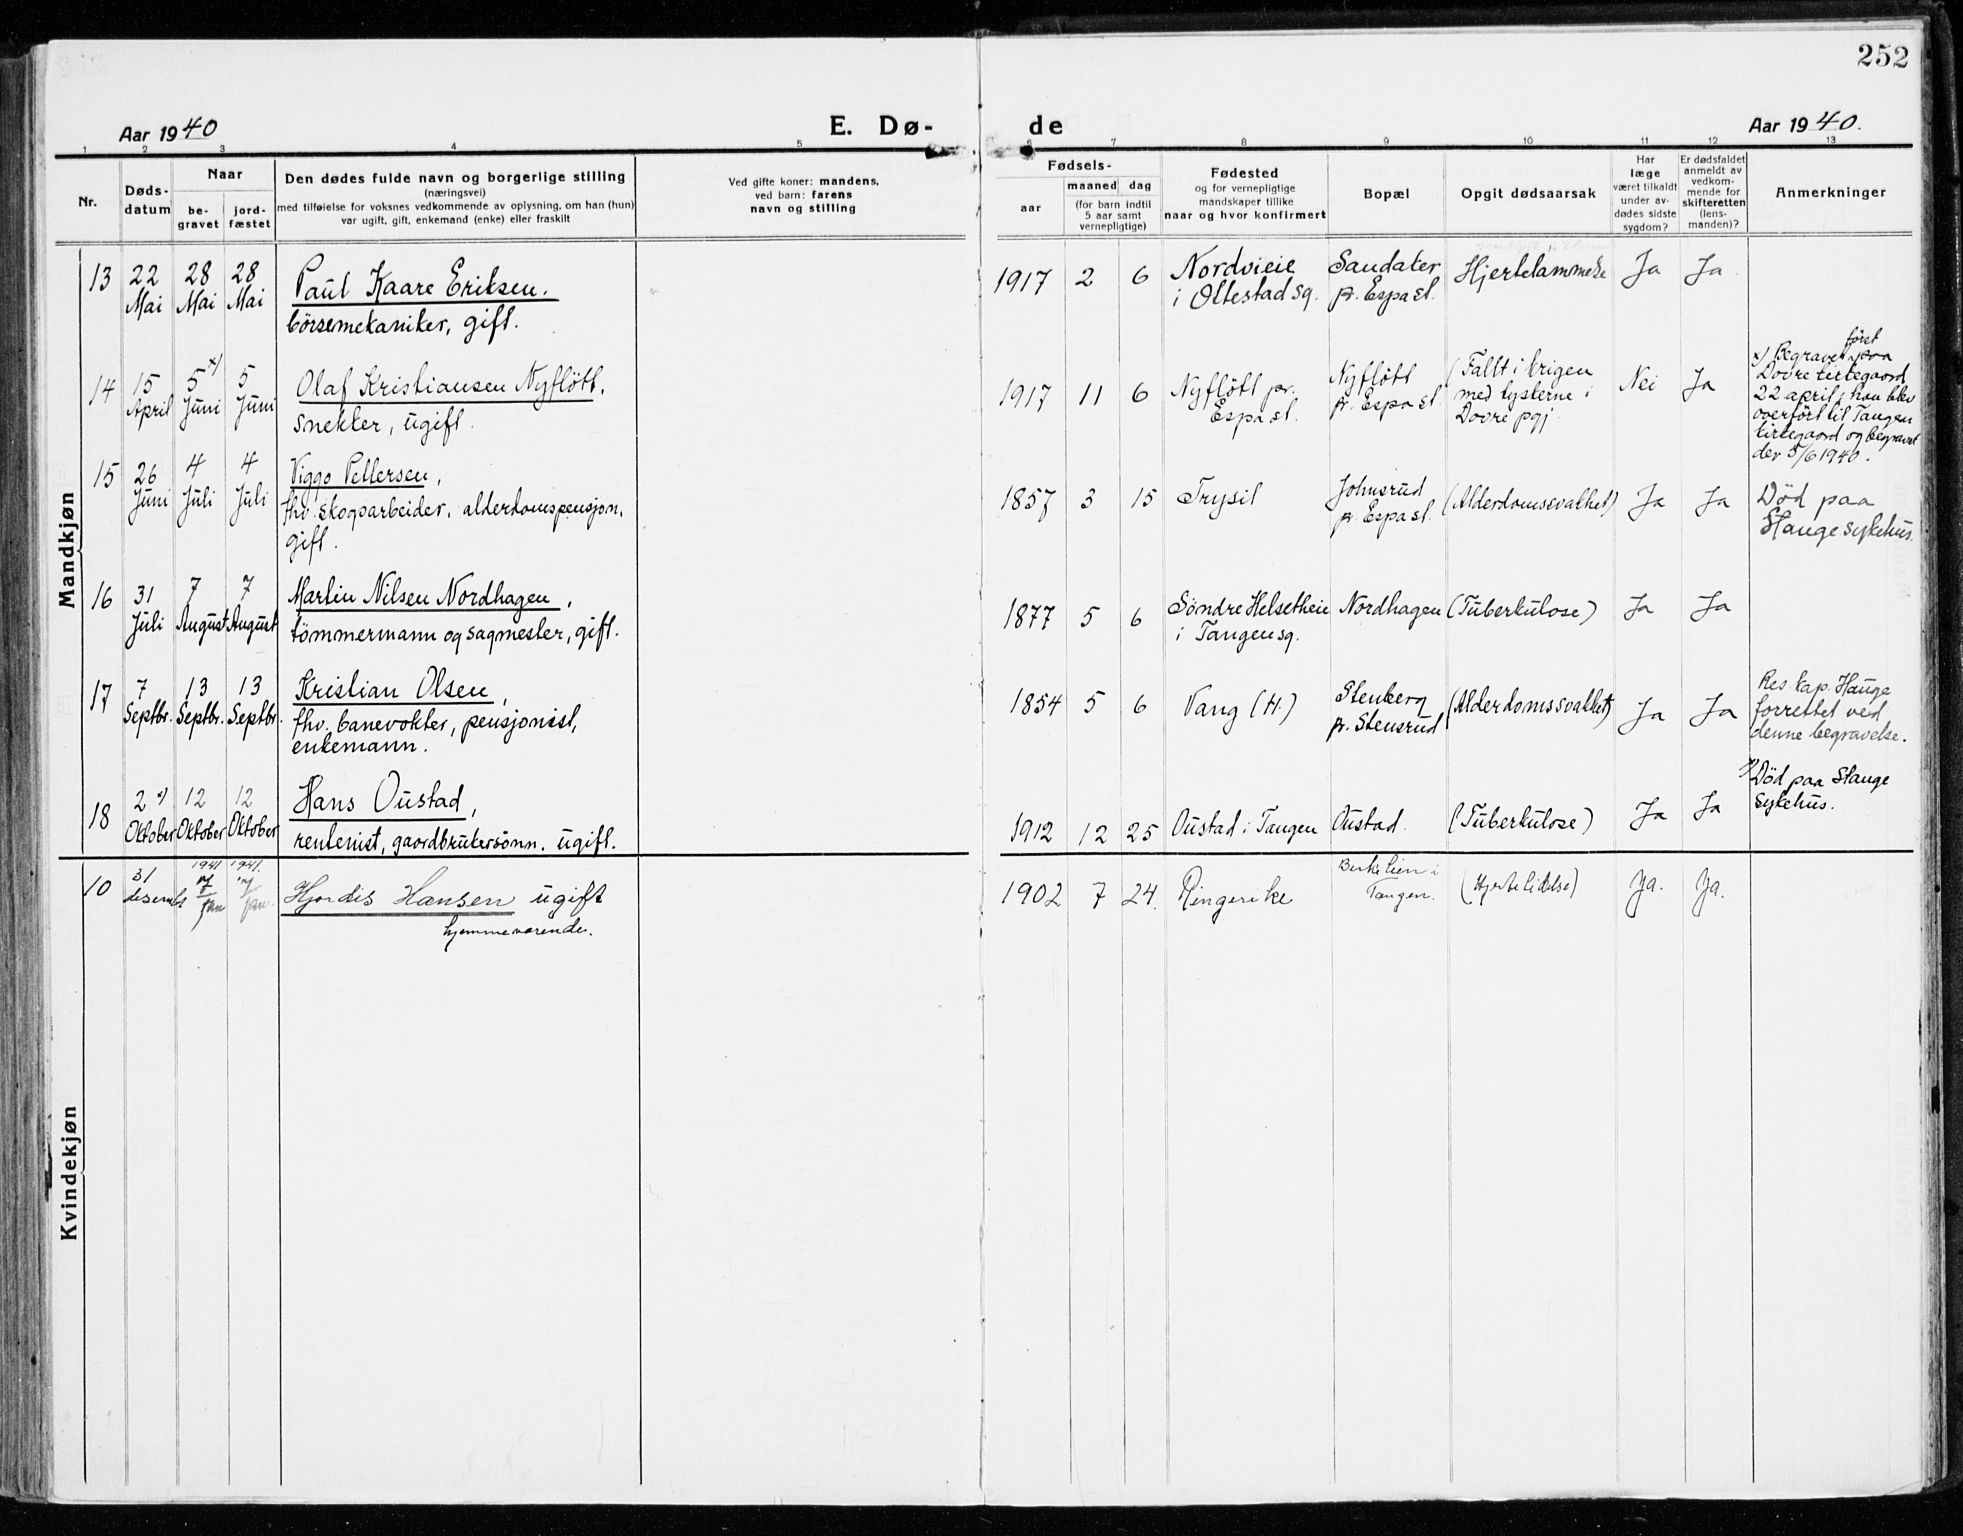 252
Aar 1940
E. Dø-
de
Aar 1940.
1 2 3 4 5 6 7 8 9 10 11 12 13
Nr.
Døds-
datum
Naar
be-
gravet
jord-
fæstet
Den dødes fulde navn og borgerlige stilling
(næringsvei)
med tilføielse for voksnes vedkommende av oplysning, om han (hun)
var ugift, gift, enkemand (enke) eller fraskilt
Ved gifte koner: mandens,
ved barn: farens
navn og stilling
Fødsels-
aar
maaned dag
(for barn indtil
5 aar samt
vernepligtige)
Fødested
og for vernepligtige
mandskaper tillike
naar og hvor konfirmert
Bopæl
Opgit dødsaarsak
Har
læge
været tilkaldt
under av-
dødes sidste
sygdom?
Er dødsfaldet
anmeldt av
vedkom-
mende for
skifteretten
(lens-
manden)?
Anmerkninger
Mandkjøn
13
22
Mai
28
Mai
28
Mai
Paul Kaare Eriksen.
børsemekaniker, gift.
1917 2 6
Nordvieie
i Ottestad sg.
Sandaker
p. Espa st.
Hjertelammelse
Ja
Ja
14
15
April
5 x)
Juni
5
Juni
Olaf Kristiansen Nyfløtt.
Snekker, ugift.
1917 11 6
Nyfløtt pr.
Espa st.
Nyfløtt
pr. Espa st.
(Fallt i krigen
med tyskerne i
Dovre pgj.
Nei
Ja
først
x) Begravet paa
Dovre kirkegaard
22 april; han blev
overført til Tangen
kirkegaard og begravet
der 5/6 1940.
15
26
Juni
4
Juli
4
Juli
Viggo Pettersen,
fhv. skogsarbeider, alderdomspensjon.
gift.
1857 3 15
Trysil
Johnsrud
p. Espa st.
(Alderdomssvakhet)
Ja
Ja
Død paa
Stange sykehus.
16
31
Juli
7
August
7
August
Martin Nilsen Nordhagen,
tømmermann og sagmester, gift.
1877 5 6
Søndre Helsetheie
i Tangen sg.
Nordhagen
(Tuberkulose)
Ja
Ja
17
7
Septbr.
13
Septbr.
13
Septbr.
Kristian Olsen,
fhv. banevokter, pensjonist,
enkemann.
1854 5 6
Vang (H.)
Stenberg
p. Stensrud
(Alderdomssvakhet)
Ja
Ja
Res. kap. Hauge
forrettet ved
denne begravelse.
18
2 x)
Oktober
12
Oktober
12
Oktober
Hans Oustad,
rentenist, gaardbrukersønn. ugift.
1912 12 25
Oustad i Tangen
Oustad.
(Tuberkulose)
Ja
Ja
x) Død paa Stange
Sykehus.
Kvindekjøn
10
31
desemb
1941
7
jan
1941.
7
jan.
Hjordis Hansen ugift
hjemmeværende.
1902 7 24.
Ringerike
Birkelien i
Tangen.
(Hjertelidelse)
Ja.
Ja.